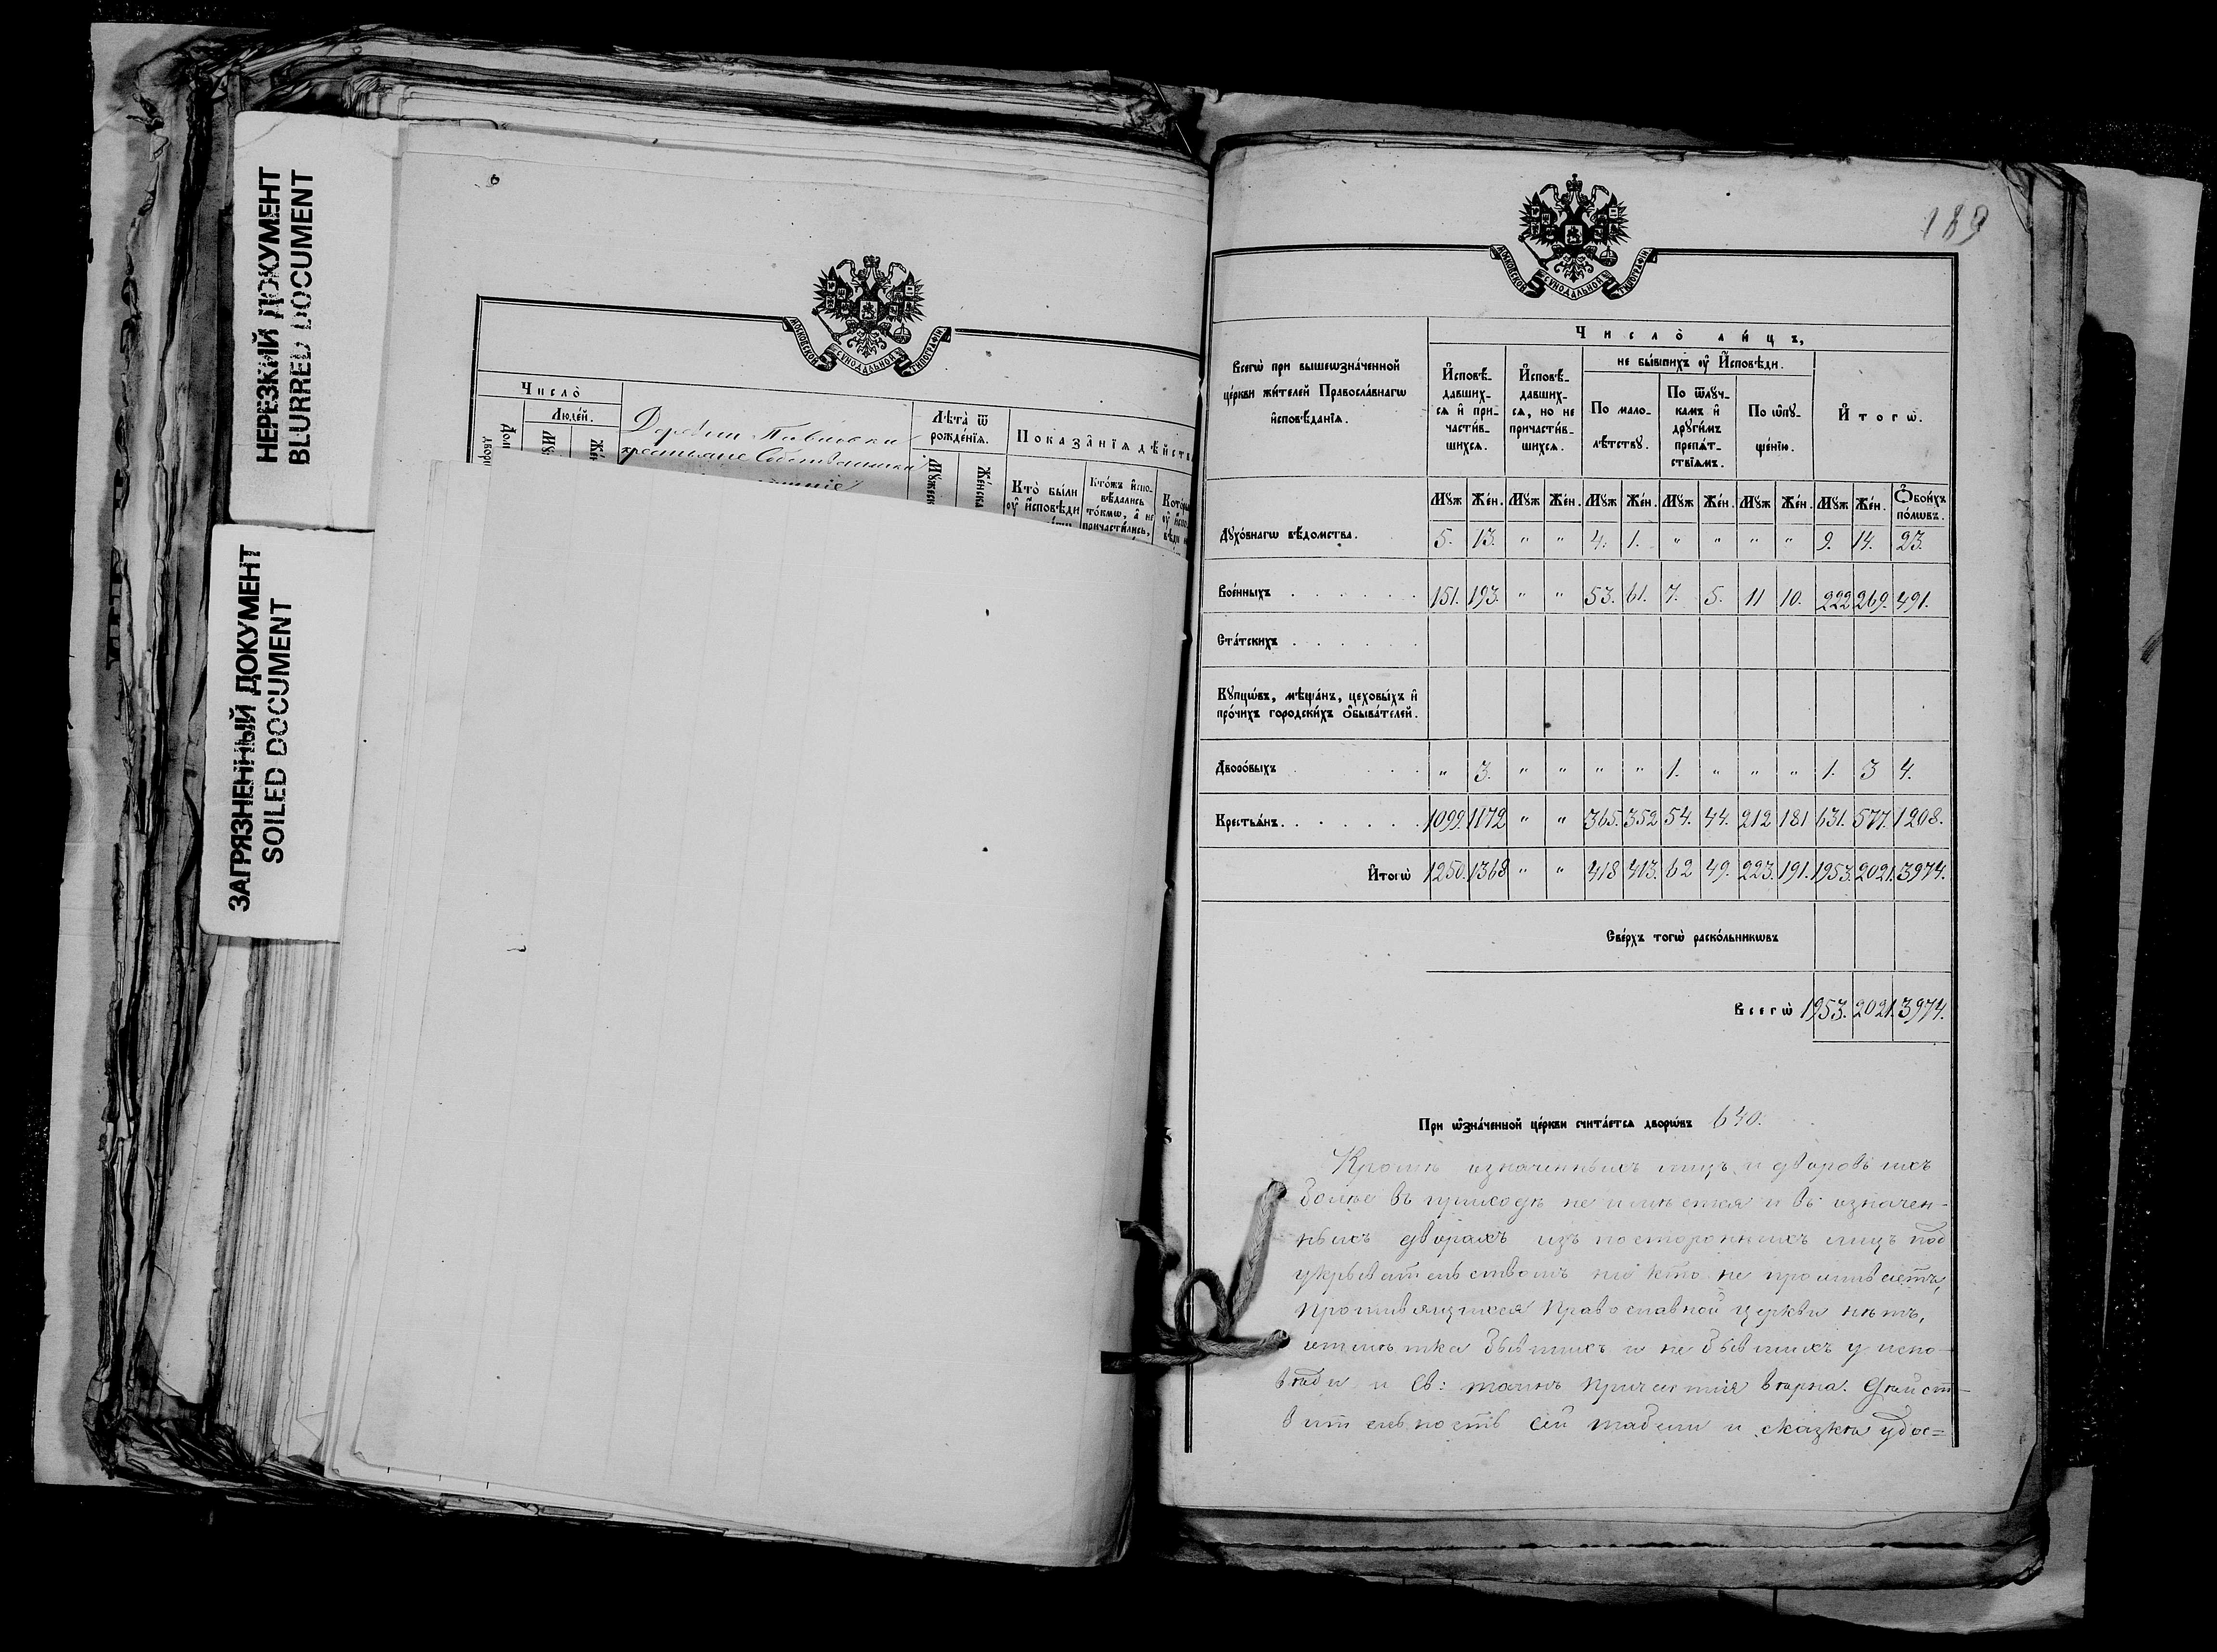 НЕРЕЗКИЙ ДОКУМЕНТ
BLURRED DOCUMENT
ЗАГРЯЗНЕННЫЙ ДОКУМЕНТ
SOILED DOCUMENT
МОСКОВСКОЙ СѴНОДАЛЬНОЙ ТѴПОГРАФІИ
Число̀
Людей.
Деревни
крестьяне Собственники
Лѣта̀ ѿ
рожде́нїѧ.
Показа̑нїѧ дѣйств
Кто̀ бы́ли
оу҆ и҆сповѣди
Кто́жъ и҆спо-
вѣдались
то́кмѡ, а҆ не
причасти́лись,
189
МОСКОВСКОЙ СѴНОДАЛЬНОЙ ТѴПОГРАФІИ
Число̀ ли́цъ,
Всегѡ̀ при вышеѡзна́ченной
це́ркви жи́телей Правосла́внагѡ
и҆сповѣ́данїѧ.
И҆сповѣ́-
давших-
сѧ и҆ при-
части́в-
шихсѧ.
И҆сповѣ́-
давших-
сѧ, но не
причасти́в-
шихсѧ.
не бы́вшихъ оу҆ И҆́сповѣди.
По мало-
лѣ́тствꙋ.
По ѿлꙋч-
камъ и҆
дрꙋги́мъ
препѧ́т-
ствїѧмъ.
По ѡ҆пꙋ-
ще́нїю.
И҆тогѡ̀.
Мꙋж Же́н. Мꙋж Же́н. Мꙋж Же́н. Мꙋж Же́н. Мꙋж Же́н. Мꙋж Же́н. Ѻ҆бои́хъ по́лѡвъ.
Дꙋхо́внагѡ вѣ́домства. 5. 13. " " 4. 1. " " " " 9. 14. 23.
Вое́нныхъ 151. 193. " " 53. 61. 7. 5. 11 10. 222 269. 491.
Ста́тскихъ
Кꙋпцѡ́въ, мѣща́нъ, цеховы́хъ и҆
про́чихъ городски́хъ ѻ҆быва́телей.
Дворо́выхъ " 3. " " " " 1. " " " 1. 3 4.
Крестьѧ́нъ 1099. 1172 " " 365. 352 54. 44. 212 181 631. 577. 1208.
И҆тогѡ̀ 1250. 1368 " " 418 413. 62 49. 223. 191. 1953. 2021. 3974.
Све́рхъ тогѡ̀ раско́льникѡвъ
Всегѡ̀ 1953. 2021. 3974.
При ѡ҆зна́ченной це́ркви счита́етсѧ дворѡ́въ 640.
Кромѣ означенныхъ лицъ и дворовъ ихъ
болѣе въ приходѣ не имѣется и въ означен-
ныхъ дворахъ изъ постороннихъ лицъ под
укрывательствомъ никто не проживаетъ,
противящихся Православной церкви нѣтъ,
отмѣтка бывшихъ и не бывшихъ у испо-
вѣди и Св: таинъ Причастія вѣрна. Дѣйст-
вительность сей табели и сказки удос=